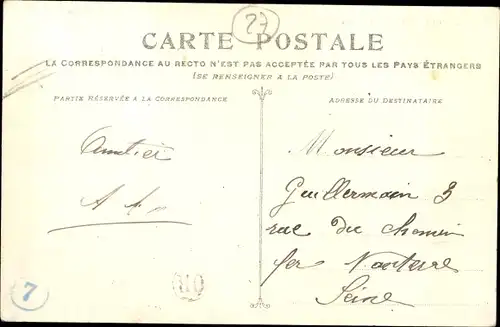 27
CARTE POSTALE
LA CORRESPONDANCE AU RECTO N'EST PAS ACCEPTÉE PAR TOUS LES PAYS ÉTRANGERS
(SE RENSEIGNER A LA POSTE)
PARTIE RÉSERVÉE A LA CORRESPONDANCE
ADRESSE DU DESTINATAIRE
Monsieur
Guillermain 3
rue du chemin
fer Nanterre
Seine
7